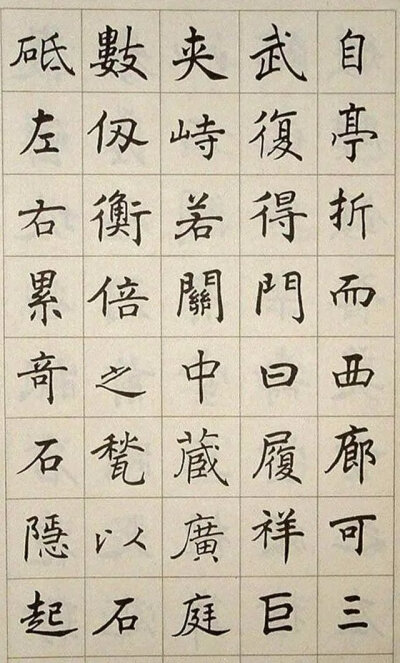 自亭折而西廊可三
武復得門曰履祥巨
夹峙若關中蔵廣庭
數仭衡倍之甃以石
砥左右累奇石隱起